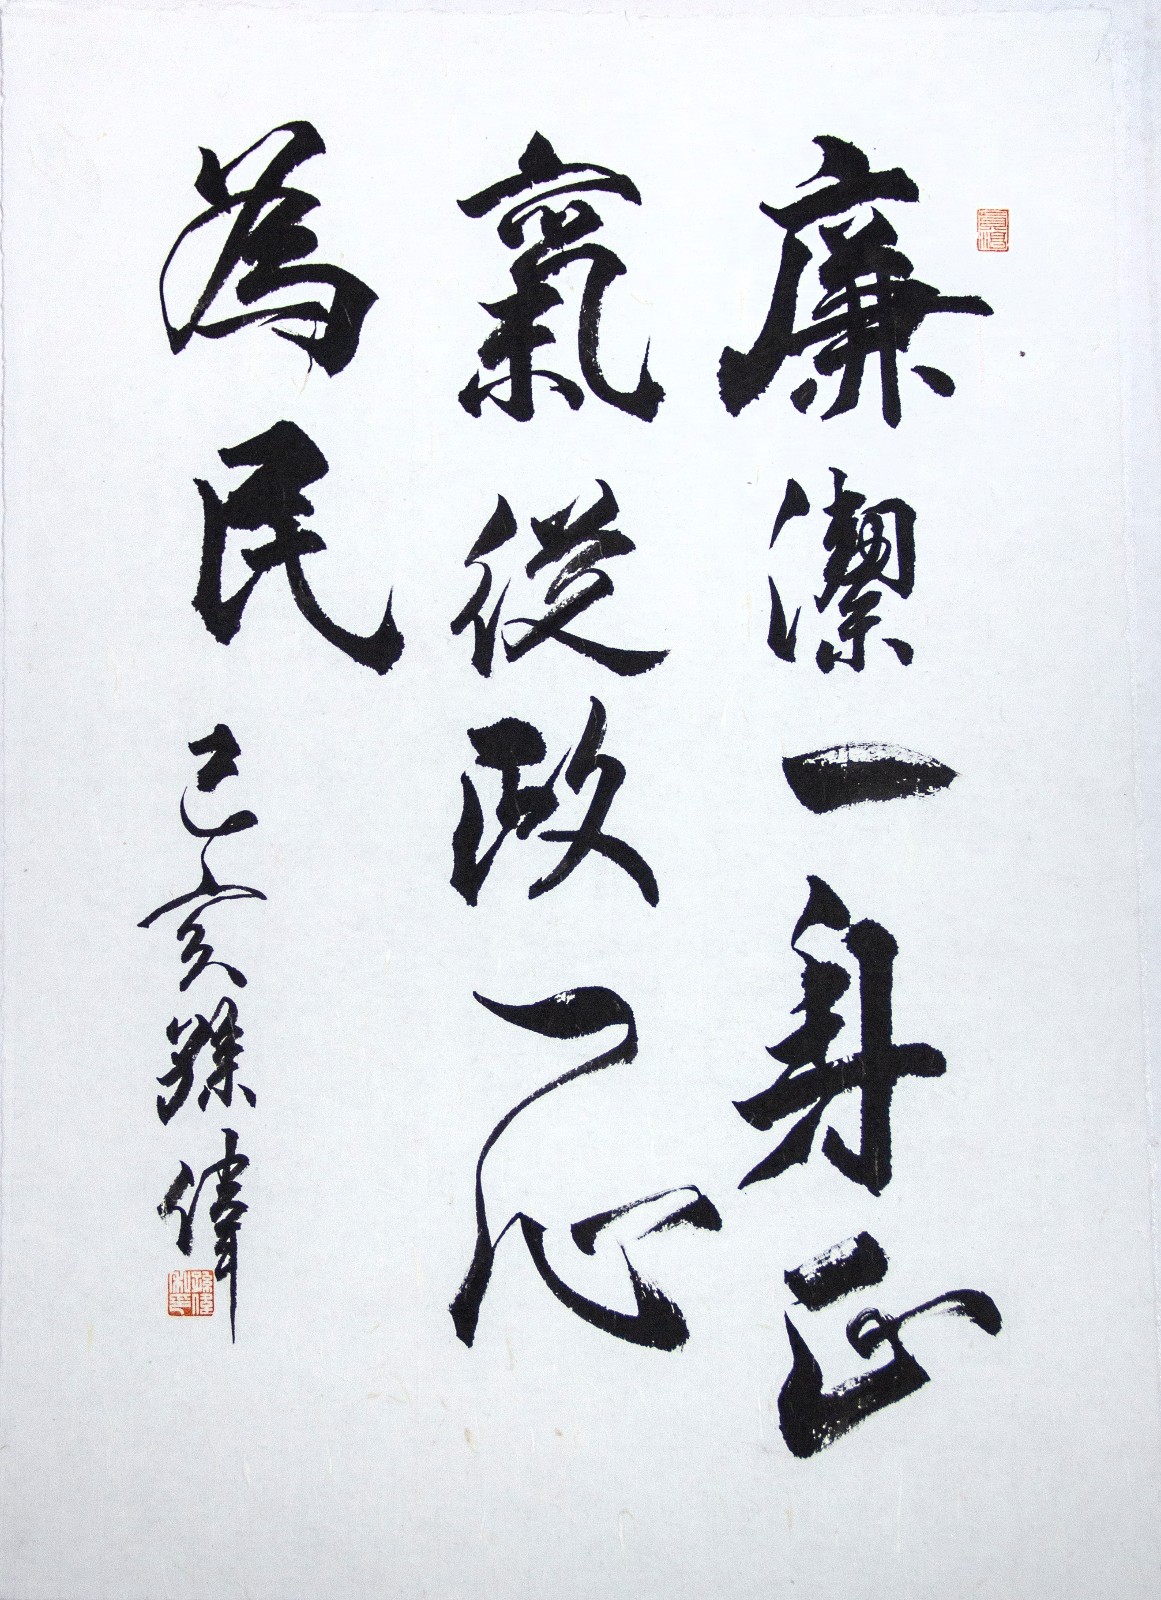 廉潔一身正
氣從政一心
為民
己亥孫偉